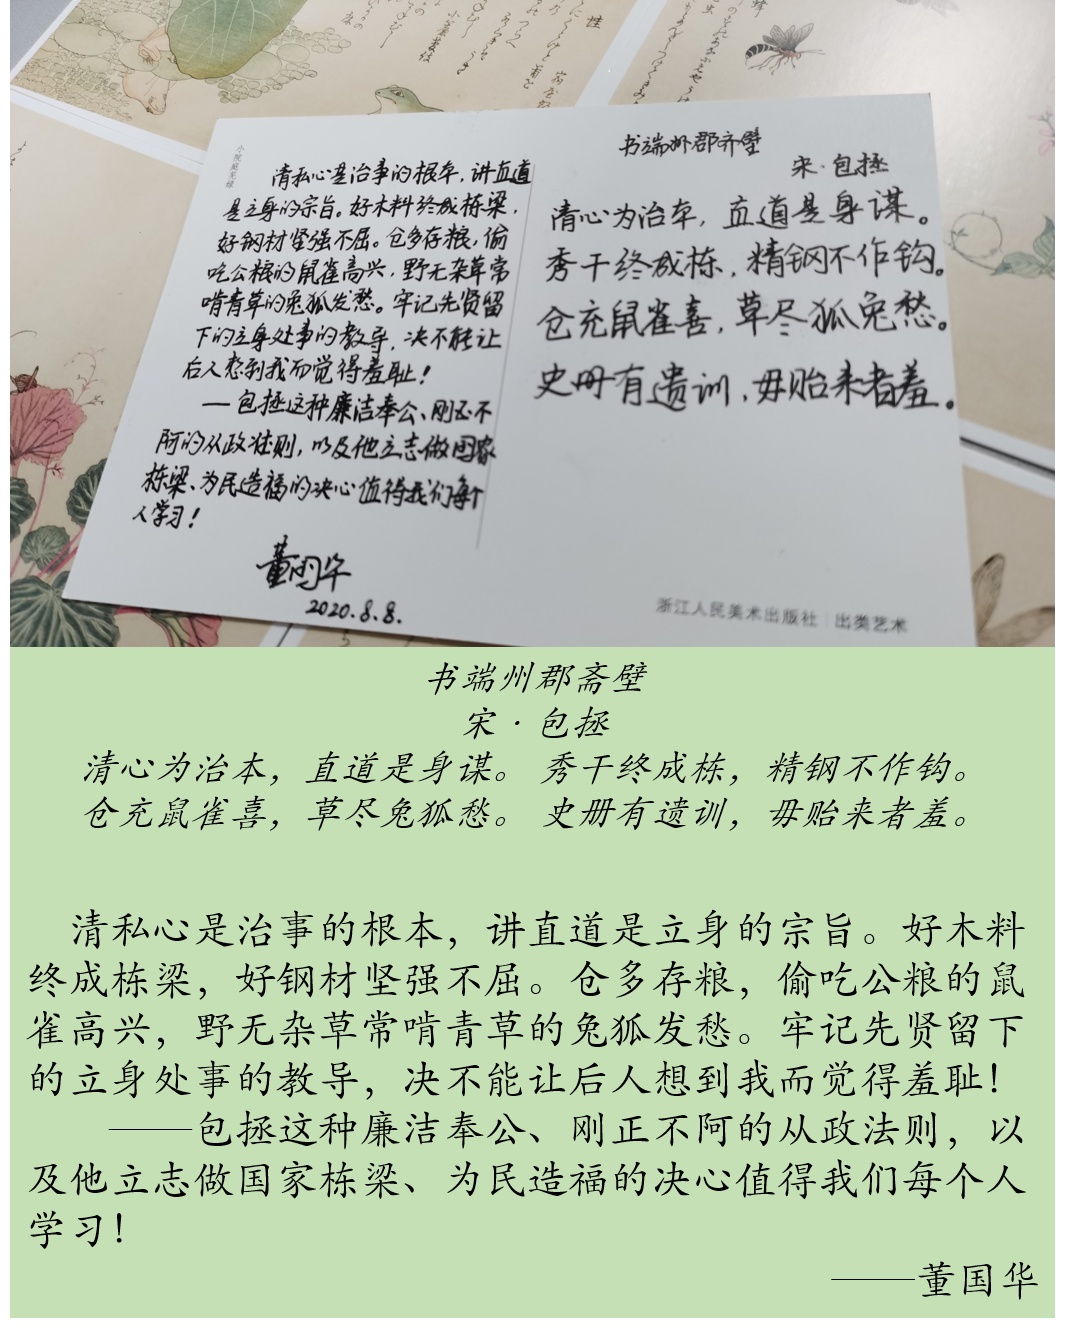 性
小院庭芜绿
清私心是治事的根本，讲直道
是立身的宗旨。好木料终成栋梁，
好钢材坚强不屈。仓多存粮，偷
吃公粮的鼠雀高兴，野无杂草常
啃青草的兔狐发愁。牢记先贤留
下的立身处事的教导，决不能让
后人想到我而觉得羞耻！
—包拯这种廉洁奉公、刚正不
阿的从政准则，以及他立志做国家
栋梁、为民造福的决心值得我们每个
人学习！
董国华
2020.8.8.
书端州郡斋壁
宋·包拯
清心为治本，直道是身谋。
秀干终成栋，精钢不作钩。
仓充鼠雀喜，草尽狐兔愁。
史册有遗训，毋贻来者羞。
浙江人民美术出版社 | 出类艺术
书端州郡斋壁
宋·包拯
清心为治本，直道是身谋。 秀干终成栋，精钢不作钩。
仓充鼠雀喜，草尽兔狐愁。 史册有遗训，毋贻来者羞。
清私心是治事的根本，讲直道是立身的宗旨。好木料
终成栋梁，好钢材坚强不屈。仓多存粮，偷吃公粮的鼠
雀高兴，野无杂草常啃青草的兔狐发愁。牢记先贤留下
的立身处事的教导，决不能让后人想到我而觉得羞耻！
——包拯这种廉洁奉公、刚正不阿的从政法则，以
及他立志做国家栋梁、为民造福的决心值得我们每个人
学习！
——董国华